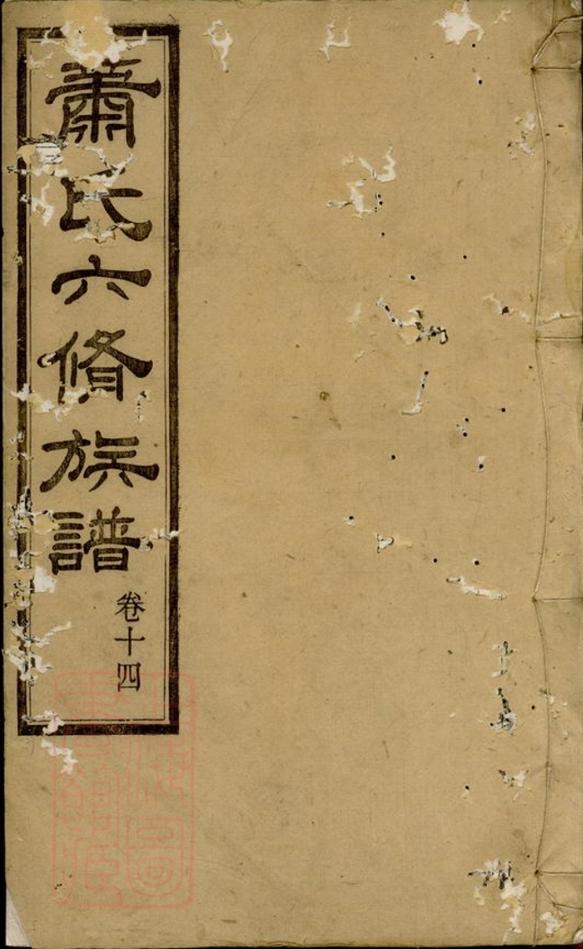 蕭氏六脩族譜
卷十四